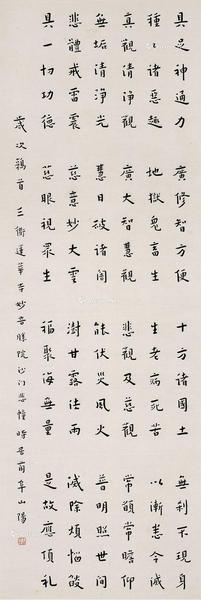 具足神通力 廣修智方便 十方諸國土 無刹不現身
種々諸惡趣 地獄鬼畜生 生老病死苦 以漸悉令滅
真觀清淨觀 廣大智慧觀 悲觀及慈觀 常願常瞻仰
無垢清淨光 慧日破諸闇 能伏災風火 普明照世間
悲體戒雷震 慈意妙大雲 澍甘露法雨 滅除煩惱燄
具一切功德 慈眼視眾生 福聚海無量 是故應頂禮
歲次鶉首 三衢蓮華寺妙勝院沙門悲幢時居山陽